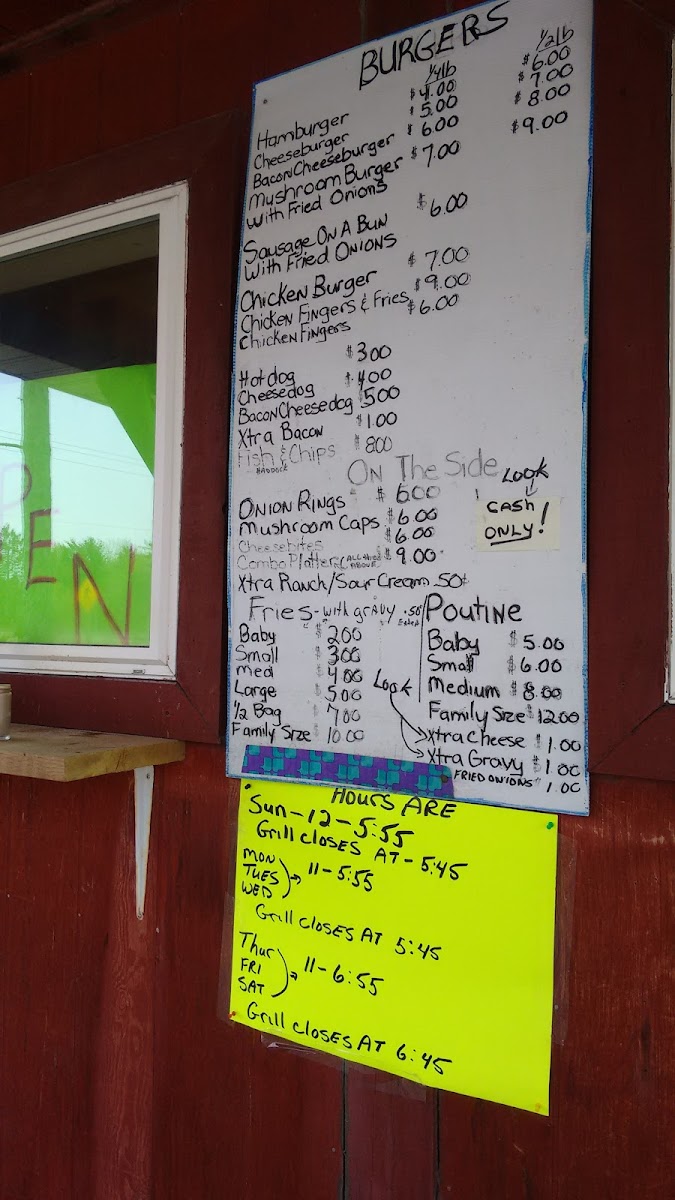 BURGERS
1/4lb 1/2lb
Hamburger $4.00 $6.00
Cheeseburger $5.00 $7.00
Bacon Cheeseburger $6.00 $8.00
Mushroom Burger $7.00 $9.00
With Fried Onions
Sausage On A Bun $6.00
With Fried Onions
Chicken Burger $7.00
Chicken Fingers & Fries $9.00
Chicken Fingers $6.00
Hotdog $300
Cheesedog $400
Bacon Cheesedog 500
Xtra Bacon $1.00
Fish & Chips $800
HADDOCK
On The Side
Look
CASH
ONLY!
Onion Rings $600
Mushroom Caps $6.00
Cheesebites $6.00
Combo Platter (ALL THREE ABOVE) $9.00
Xtra Ranch/Sour Cream .50¢
Fries - with gravy .50 Extra
Baby $200
Small $300
Med $400
Large $500
1/2 Bag $700
Family Size 1000
Poutine
Baby $5.00
Small $6.00
Medium $8.00
Family Size $1200
Look
Xtra Cheese $1.00
Xtra Gravy $1.00
FRIED ONIONS 1.00
HOURS ARE
Sun - 12 - 5:55
Grill closes AT - 5:45
MON
TUES 11 - 5:55
WED
Grill closes AT 5:45
Thur
FRI 11 - 6:55
SAT
Grill closes AT 6:45
PEN